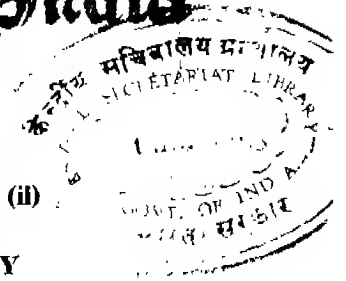 India
केन्द्रीय सचिवालय ग्रन्थालय
SECRETARIAT LIBRARY
(ii)
GOVT. OF INDIA
सरकार
Y